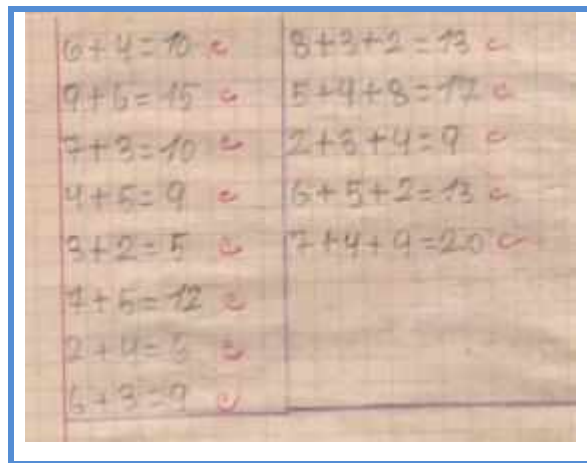 6+4=10 c
9+6=15 c
7+3=10 c
4+5=9 c
3+2=5 c
7+5=12 c
2+4=6 c
6+3=9 c
8+3+2=13 c
5+4+8=17 c
2+3+4=9 c
6+5+2=13 c
7+4+9=20 c